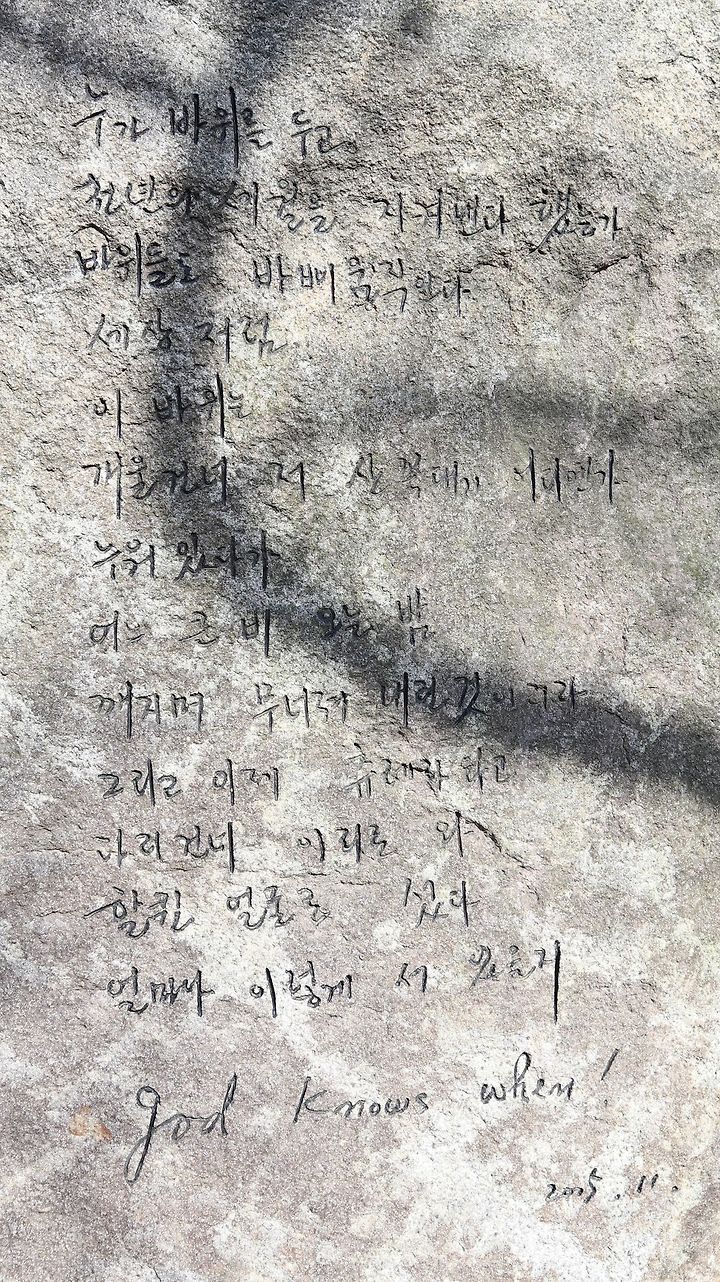 누가 바위를 두고
천년의 세월을 지켜낸다 했는가
바위들도 바삐 움직인다
세상처럼
이 바위는
개울건너 저 산꼭대기 어디멘가
누워 있다가
어느 큰 비 오는 밤
깨지며 무너져 내린 것이그라
그리고 이제 휴레라 라고
다리건너 이리로 와
할퀸 얼굴로 섰다
얼마나 이렇게 서 있을거
god knows when!
2005.11.